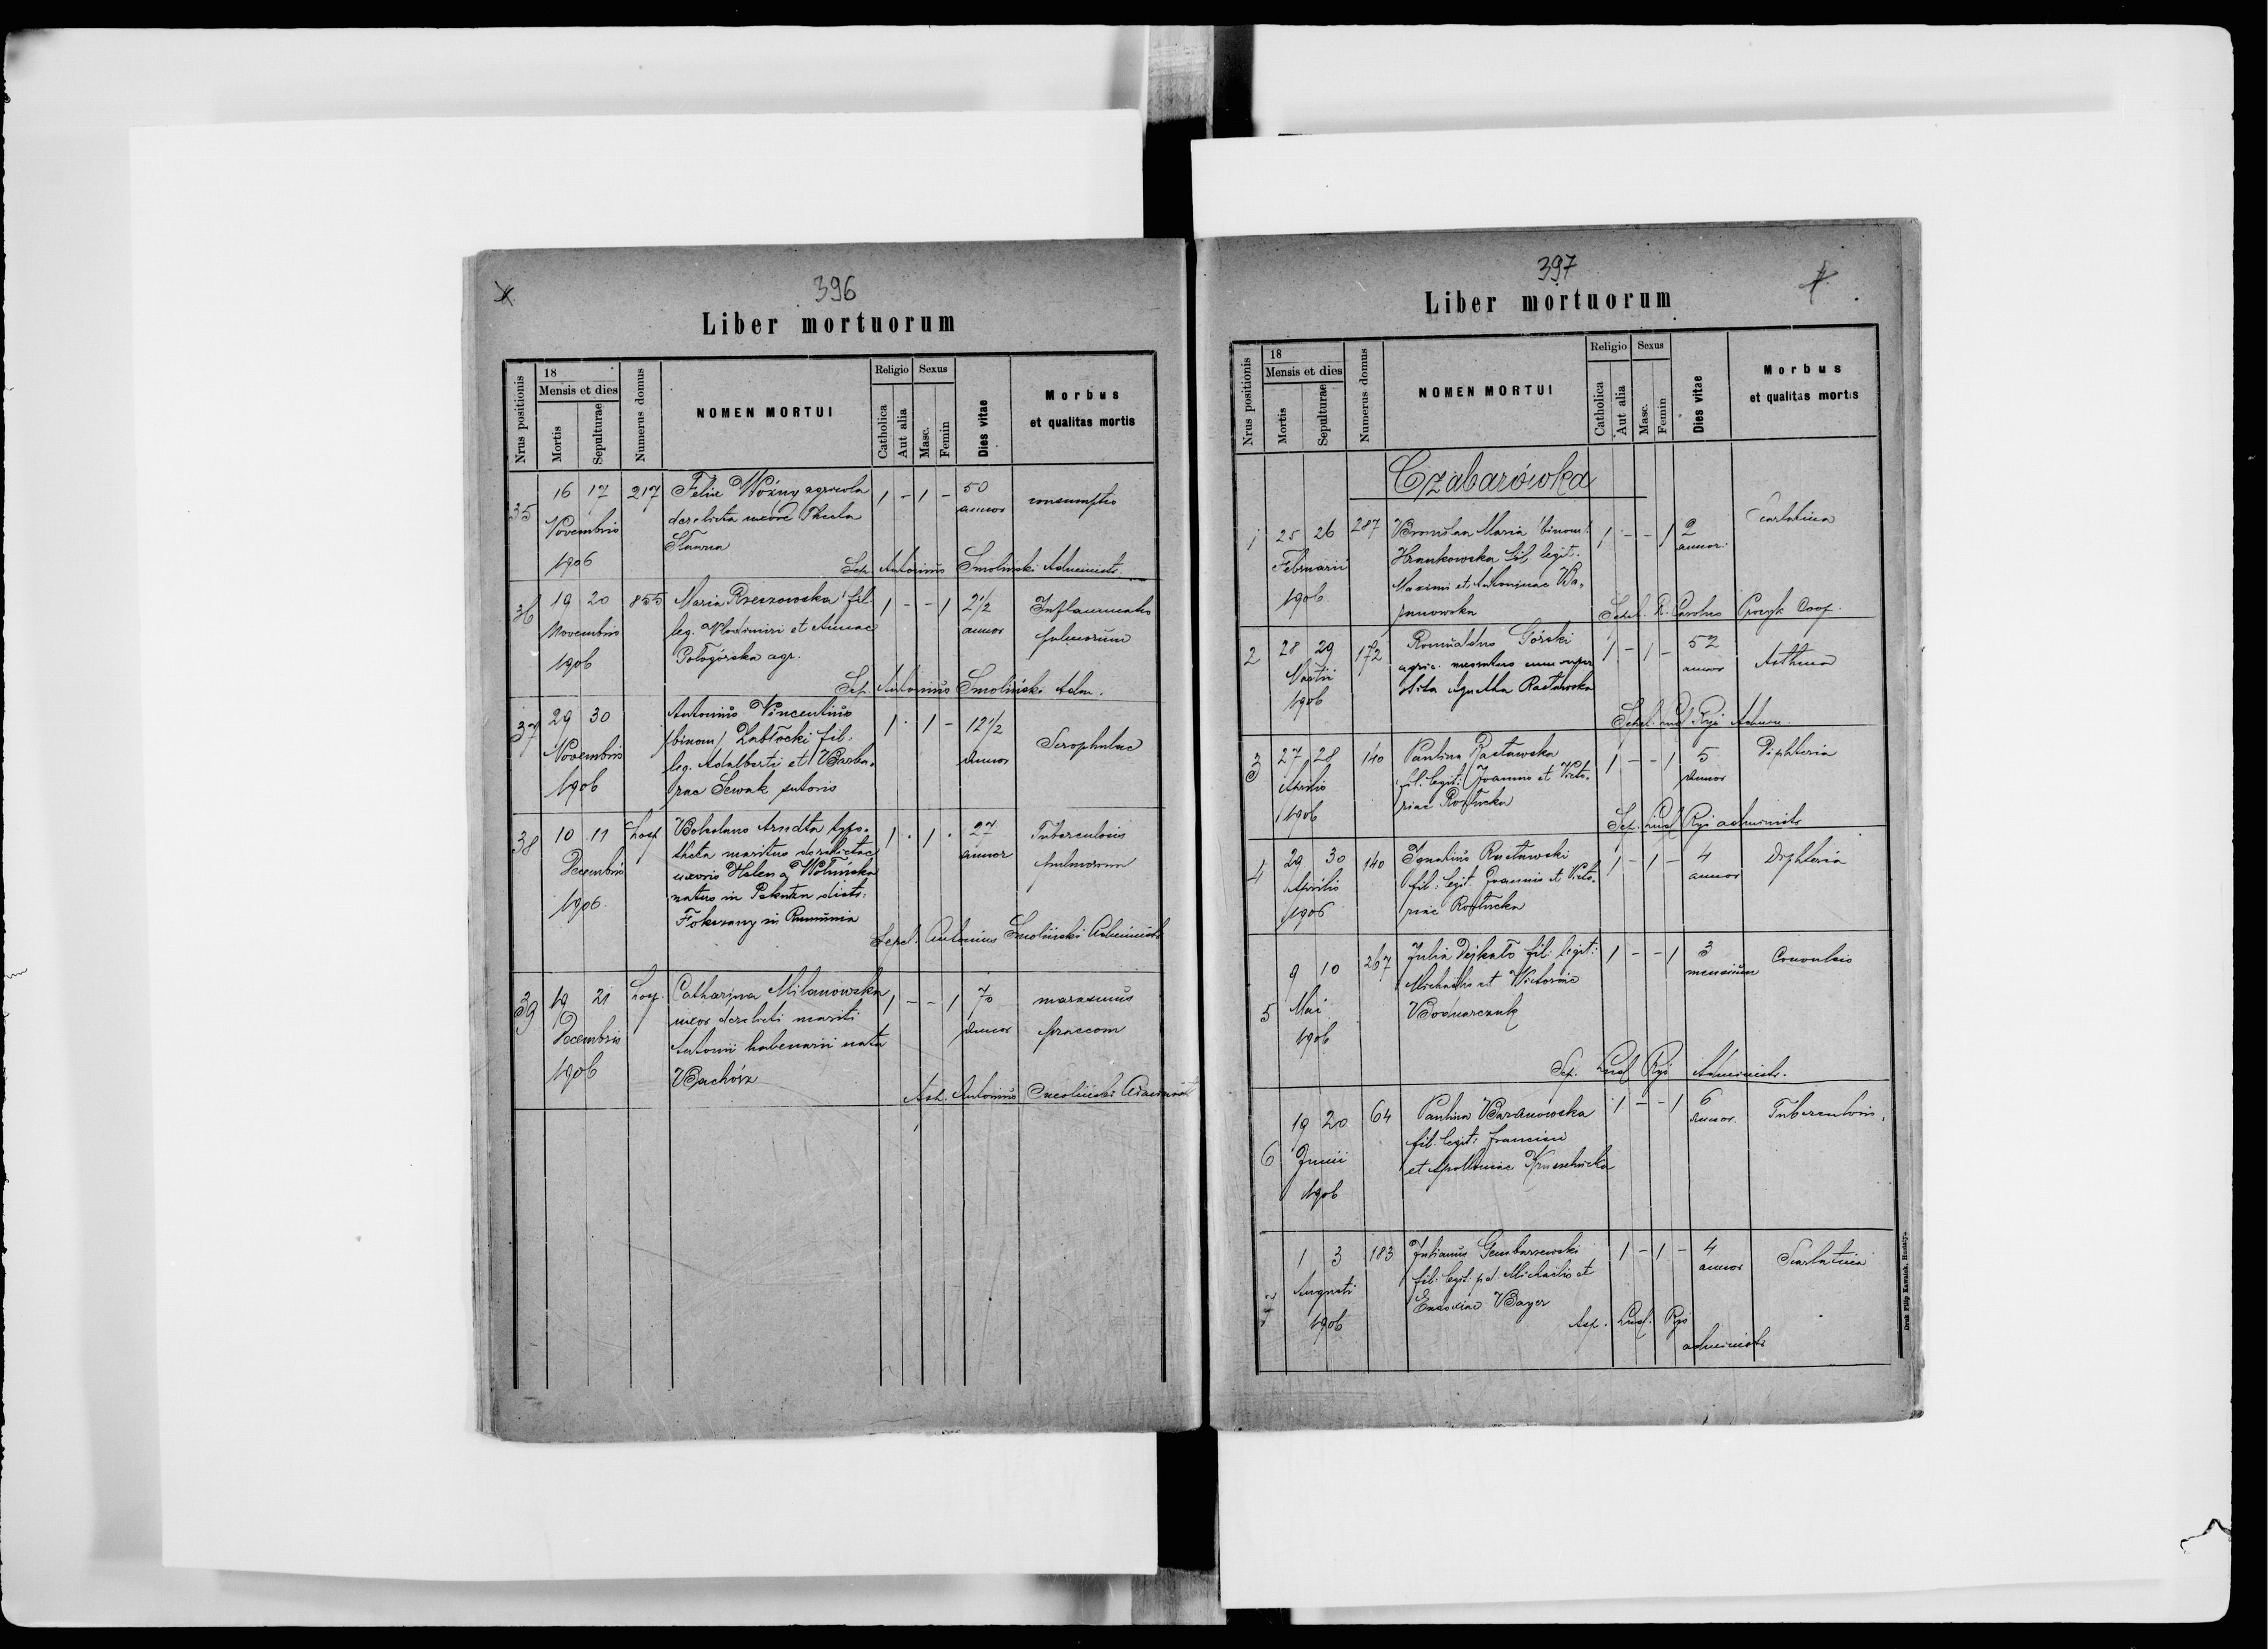 396
Liber mortuorum
Nrus positionis
18
Mensis et dies
Mortis
Sepulturae
Numerus domus
NOMEN MORTUI
Religio
Catholica
Aut alia
Sexus
Masc.
Femin
Dies vitae
Morbus
et qualitas mortis
35 16 17 217 Felix Woźny agricola 1 - 1 - 50 consumptio
Novembris derelicta uxore Thecla annor
1906
Sep. Antonius Smoliński Administr.
36 19 20 855 Maria Rzeszowska fil. 1 - - 1 2 1/2 Inflammatio
Novembris leg. Vladimiri et Annae annor pulmonum
1906 Pologórska agr.
Sep. Antonius Smoliński Adm.
37 29 30 Antonius Vincentius 1 . 1 - 12 1/2 Scrophulae
Novembris (binom) Zabłocki fil. annor
1906 leg. Adalberti et Barba-
rae Sewak sutoris
38 10 11 hosp Boleslaus Arndta typo- 1 . 1 . 27 Tuberculosis
Decembris theta maritus derelictae annor pulmonum
1906. uxoris Helena Wolińska
natus in distr.
Fokszany in Rumunia
Sepel. Antonius Smoliński Administr
39 19 21 hosp. Catharina Milanowska 1 - - 1 70 marasmus
Decembris uxor derelicti mariti annor praecom
1906 Antonii nata
Bachórz
Antonius Smoliński Administr
397
Liber mortuorum
Nrus positionis
18
Mensis et dies
Mortis
Sepulturae
Numerus domus
NOMEN MORTUI
Religio
Catholica
Aut alia
Sexus
Masc.
Femin
Dies vitae
Morbus
et qualitas mortis
Czabarówka
1 25 26 287 Bronislaa Maria binom! 1 - - 1 2 Scarlatina
Februarii Hrankowska fil. legit. annor.
1906 Maximi et Antoninae Ba-
ranowska
Sepel. R. Carolus Coop.
2 28 29 172 Romualdus Górski 1 - 1 - 52 Asthma
Martii agric. cum super annor
1906 stita Agatha Rastawska
Sepel. Lud Ryś Adm.
3 27 28 140 Paulina Rastawska 1 - - 1 5 Diphteria
Aprilis fil. legit. Joannis et Victo- annor
1906 riae Roztucka
Sep. Lud Ryś administr
4 29 30 140 Ignatius Rastawski 1 - 1 - 4 Diphteria
Aprilis fil. legit. Joannis et Victo- annor
1906 riae Roztucka
5 9 10 267 Julia Dejkało fil. legit. 1 - - 1 3 Convulsio
Mai Michaelis et Victoriae mensium
1906 Bodnarczuk
Sep. Lud Ryś Administr.
6 19 20 64 Paulina Baranowska 1 - - 1 6 Tuberculosis
Junii fil. legit. Francisci annor.
1906 et Apolloniae Kruszelnicka
7 1 3 183 Julianus Gembarzewski 1 - 1 - 4 Scarlatina
Augusti fil. legit. Michaelis et annor
1906 Eudoxiae Bayer
Lud. Ryś
administr
Druk Filip Kawalek, Husiatyn.